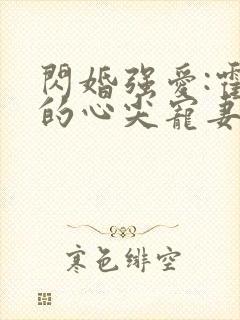 閃婚强愛:霍
的心尖寵妻
寒色緋空